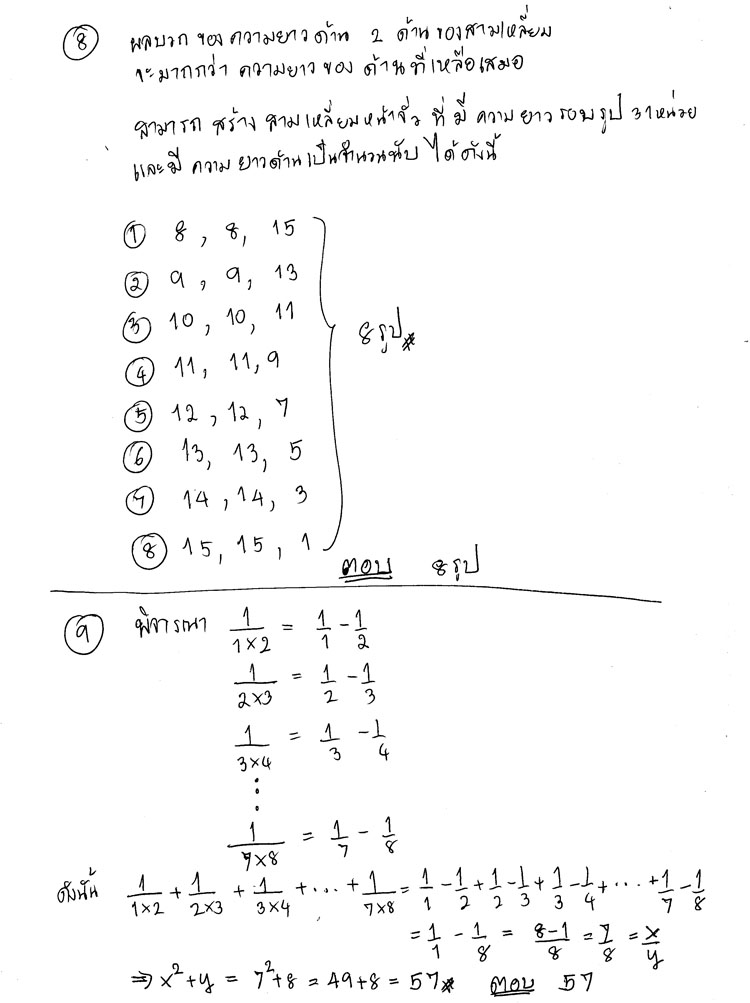 ⑧ ผลบวก ของ ความยาว ด้าน 2 ด้าน ของสามเหลี่ยม
จะมากกว่า ความยาว ของ ด้าน ที่เหลือเสมอ
สามารถ สร้าง สามเหลี่ยมหน้าจั่ว ที่ มี ความยาว รอบ รูป 31 หน่วย
และมี ความ ยาวด้าน เป็นจำนวนนับ ได้ ดังนี้
① 8, 8, 15
② 9, 9, 13
③ 10, 10, 11
④ 11, 11, 9
⑤ 12, 12, 7
⑥ 13, 13, 5
⑦ 14, 14, 3
⑧ 15, 15, 1
8 รูป
ตอบ 8 รูป
⑨ พิจารณา 1/(1×2) = 1/1 - 1/2
1/(2×3) = 1/2 - 1/3
1/(3×4) = 1/3 - 1/4
⋮
1/(7×8) = 1/7 - 1/8
ดังนั้น 1/(1×2) + 1/(2×3) + 1/(3×4) + ... + 1/(7×8) = 1/1 - 1/2 + 1/2 - 1/3 + 1/3 - 1/4 + ... + 1/7 - 1/8
= 1/1 - 1/8 = (8-1)/8 = 7/8 = x/y
⇒ x² + y = 7² + 8 = 49 + 8 = 57 ตอบ 57